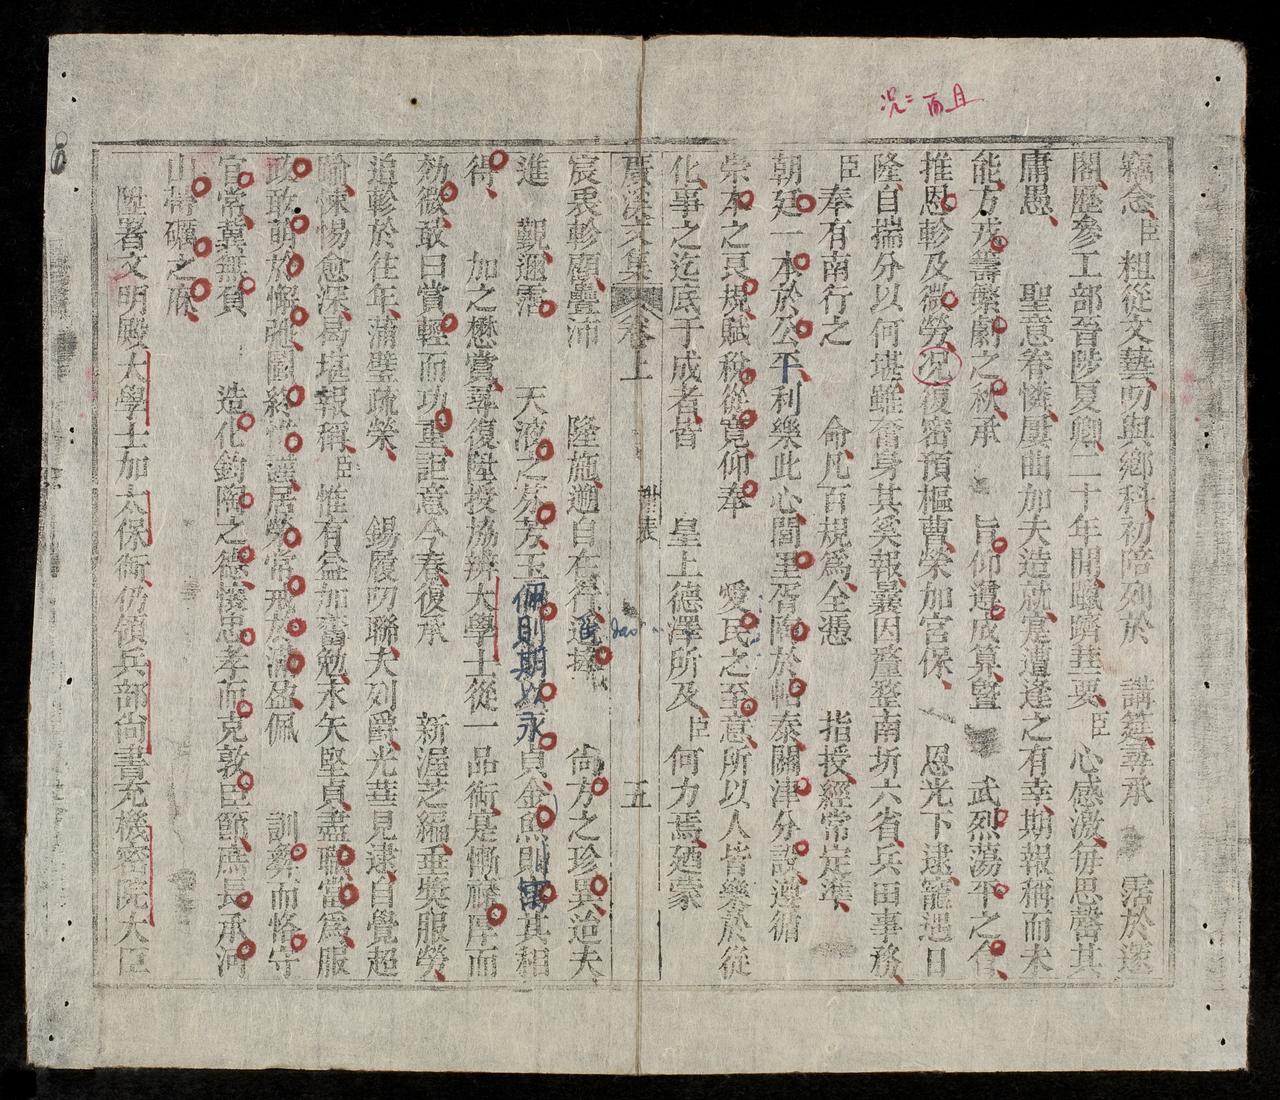 况 = 而且
竊念臣粗從文藝叨與鄉科初陪列於 講筵尋承 霑於遂
閣歷參工部晉陟夏卿二十年間職躋莖要臣心感激每思罄其
庸愚 聖意眷憐屢曲加大造就寔遭逢之有幸期報稱而未
能方戎籌繁劇之秋承 旨仰遵成算曁 武烈蕩平之
推恩軫及微勞况復密預樞曹榮加宮保 恩光下逮寵遇日
隆自揣分以何堪雖奮身其奚報曩因釐整南圻六省兵田事務
臣奉有南行之 命凡百規爲全憑 指授經常定準
朝廷一本於公平利樂此心閭里胥陶於帖泰關津分設遵循
崇本之良規賦稅從寬仰奉 愛民之至意所以人皆樂於從
化事之迄底于成者皆 皇上德澤所及臣何力焉廼蒙
廣溪文集 卷上 謝表 五
宸衷軫顧疊沛 隆施適自在 尚方之珍異迨夫
進覲遍霑 天液之芬芳玉佩則期以永貞金魚則寓其相
得 加之懋賞尋復陞授協辨大學士從一品銜寔慚酬厚而
効微敢曰賞輕而功重詎意今春復承 新渥芝綸垂獎服勞
追軫於往年蒲璧疏榮 錫履叨聯大列爵光華見逮自覺超
踰悚惕愈深曷堪報稱臣惟有益加奮勉永矢堅貞盡職當爲服
政敢萌於懈弛圖終 居榮常戒於滿盈佩 訓彝而恪守
官常冀無負 造化鈞陶之德懷忠孝而克敦臣節庶長承河
山帶礪之庥
陞署文明殿大學士加太保銜仍領兵部尚書充機密院大臣